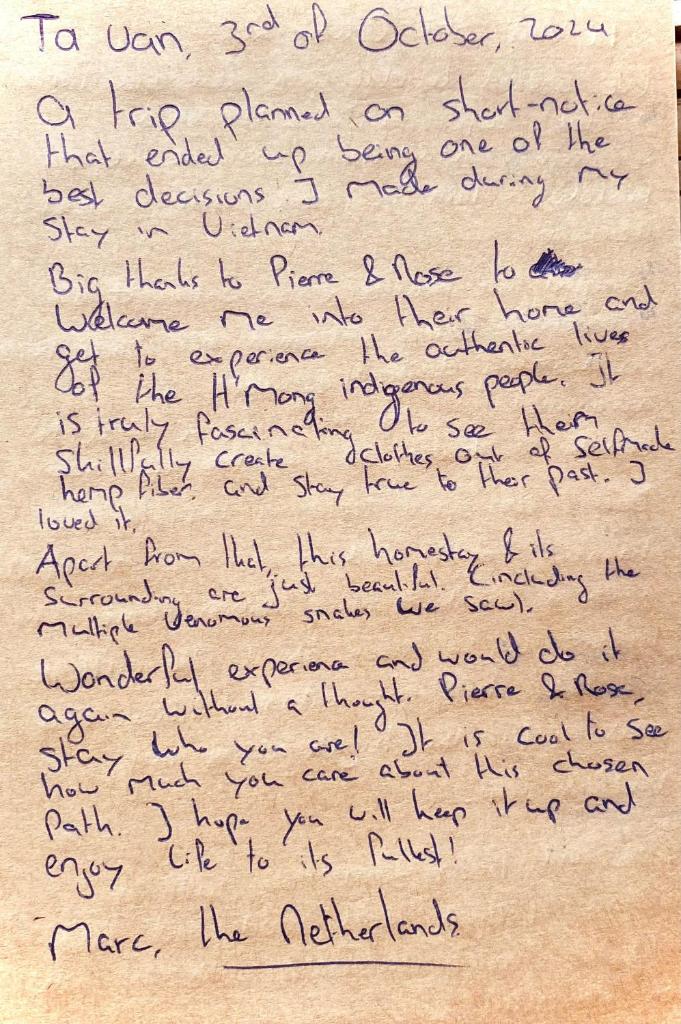 Ta Van, 3rd of October, 2024
A trip planned on short-notice
that ended up being one of the
best decisions I made during my
stay in Vietnam.
Big thanks to Pierre & Rose to
Welcome me into their home and
get to experience the authentic lives
of the H'Mong indigenous people. It
is truly fascinating to see them
Skillfully create clothes out of selfmade
hemp fiber. and stay true to their past. I
loved it.
Apart from that, this homestay & its
surrounding are just beautiful. (including the
multiple venomous snakes we saw).
Wonderful experience and would do it
again without a thought. Pierre & Rose,
stay who you are! It is cool to see
how much you care about this chosen
path. I hope you will keep it up and
enjoy life to its fullest!
Marc, the Netherlands.